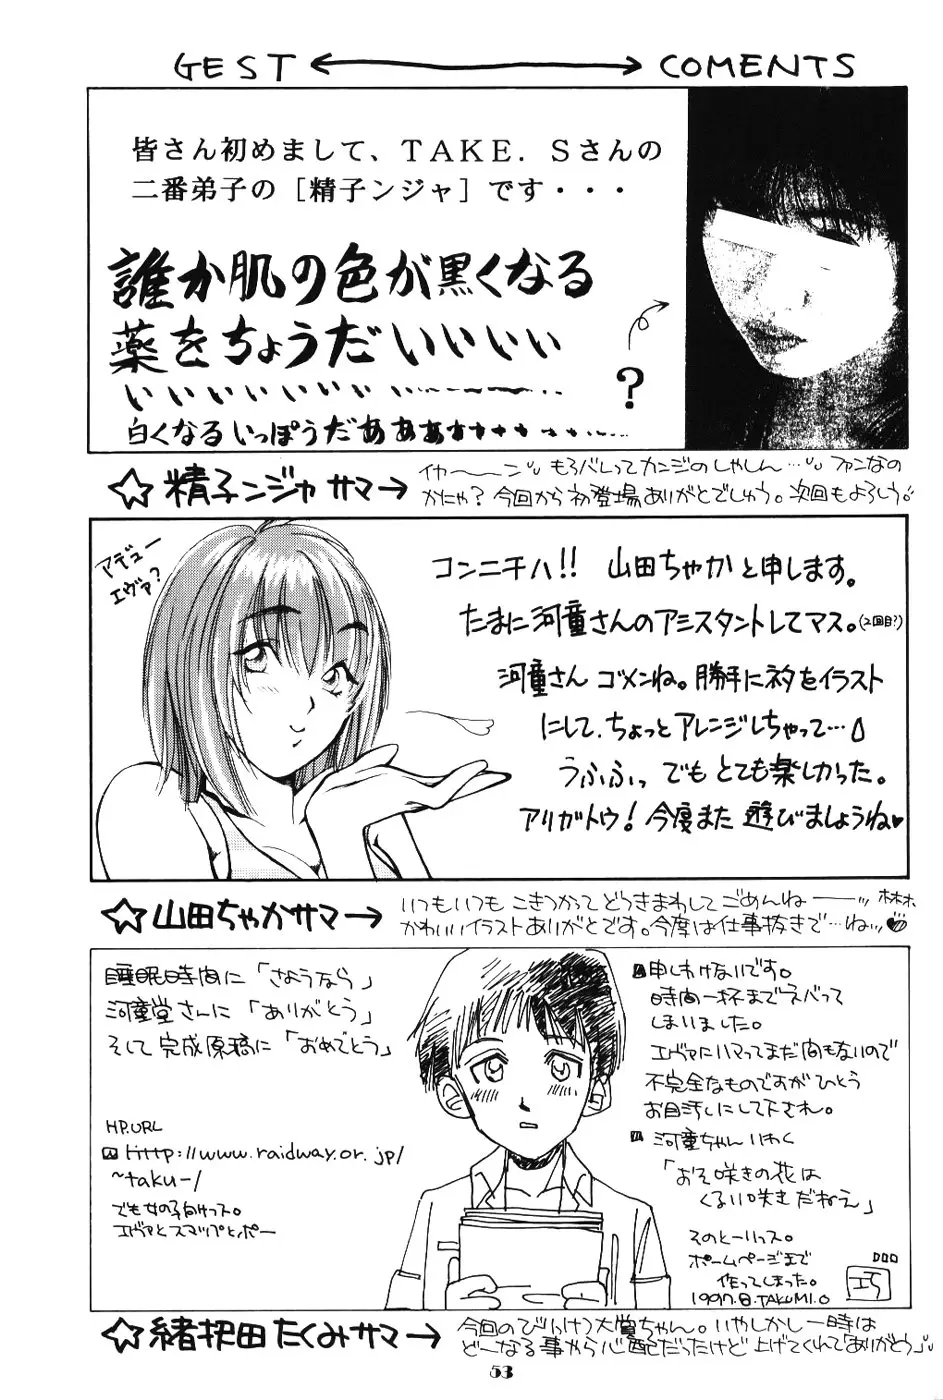 GEST ←→ COMENTS
皆さん初めまして、TAKE．Sさんの
二番弟子の［精子ンジャ］です・・・
誰か肌の色が黒くなる
薬をちょうだいいいいい
いいいいいいいい
白くなるいっぽうだあぁぁぁ
?
☆精子ンジャサマ→
イヤ〜〜ン もろバレってカンジのしゃしん…ファンなの
かにゃ?今回から初登場ありがとでしゅう。次回もよろしう。
アデュー
エヴァ?
コンニチハ!! 山田ちゃかと申します。
たまに河童さんのアシスタントしてマス。(2回目?)
河童さん ゴメンね。勝手にネタをイラスト
にして、ちょっとアレンジしちゃって…
うふふっ でも とても楽しかった。
アリガトウ! 今度また 遊びましょうね♥
☆山田ちゃかサマ→
いつもいつも こきつかって どうきまわして ごめんねー
かわいいイラストありがとです。今度は仕事抜きで…ね
睡眠時間に「さようなら」
河童堂さんに「ありがとう」
そして完成原稿に「おめでとう」
HP.URL
http://www.raidway.or.jp/
~taku-/
でも女の子向けっス。
エヴァとスマップと
申しわけないです。
時間一杯までネバって
しまいました。
エヴァにハマってまだ間もないので
不完全なものですがひとつ
お目汚しにして下され。
河童ちゃんいわく
「おそ咲きの花は
くるい咲きだねえ」
そのとーりっス。
ホームページまで
作ってしまった。
1997.8.TAKUMI.O
☆緒把田たくみサマ→
今回のびいけう大賞ちゃん。いやしかし一時は
どーなる事やら心配だったけど 上げてくれて「ありがとう」
53